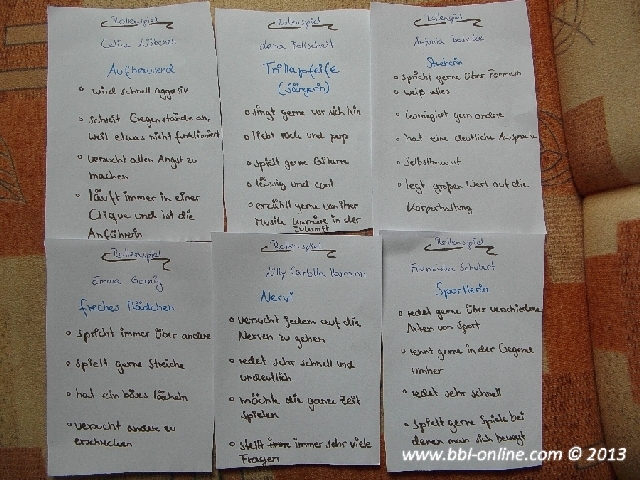 Rollenspiel
Aufbrausend
wird schnell aggresiv
schreit Gegenstände an,
weil etwas nicht funktioniert
versucht allen Angst zu
machen
läuft immer in einer
Clique und ist die
Anführerin
Rollenspiel
Trillapfeife
(Sängerin)
singt gerne vor sich hin
liebt rock und pop
spielt gerne Gitarre
lässig und cool
erzählt gerne von ihrer
Musik karriere in der
Zukunft
Rollenspiel
Streberin
spricht gerne über Formeln
weiß alles
gern andere
hat eine deutliche Aussprache
selbstbewusst
legt großen Wert auf die
Körperhaltung
Rollenspiel
Emma
freches Mädchen
spricht immer über andere
spielt gerne Streiche
hat ein böses lächeln
versucht andere zu
erschrecken
Rollenspiel
Nervi
versucht jedem auf die
Nerven zu gehen
redet sehr schnell und
undeutlich
möchte die ganze Zeit
spielen
stellt immer sehr viele
Fragen
Rollenspiel
Sportlerin
redet gerne über verschiedene
Arten von Sport
rennt gerne in der Gegend
umher
redet sehr schnell
spielt gerne Spiele bei
denen man sich bewegt
www.bbl-online.com © 2013